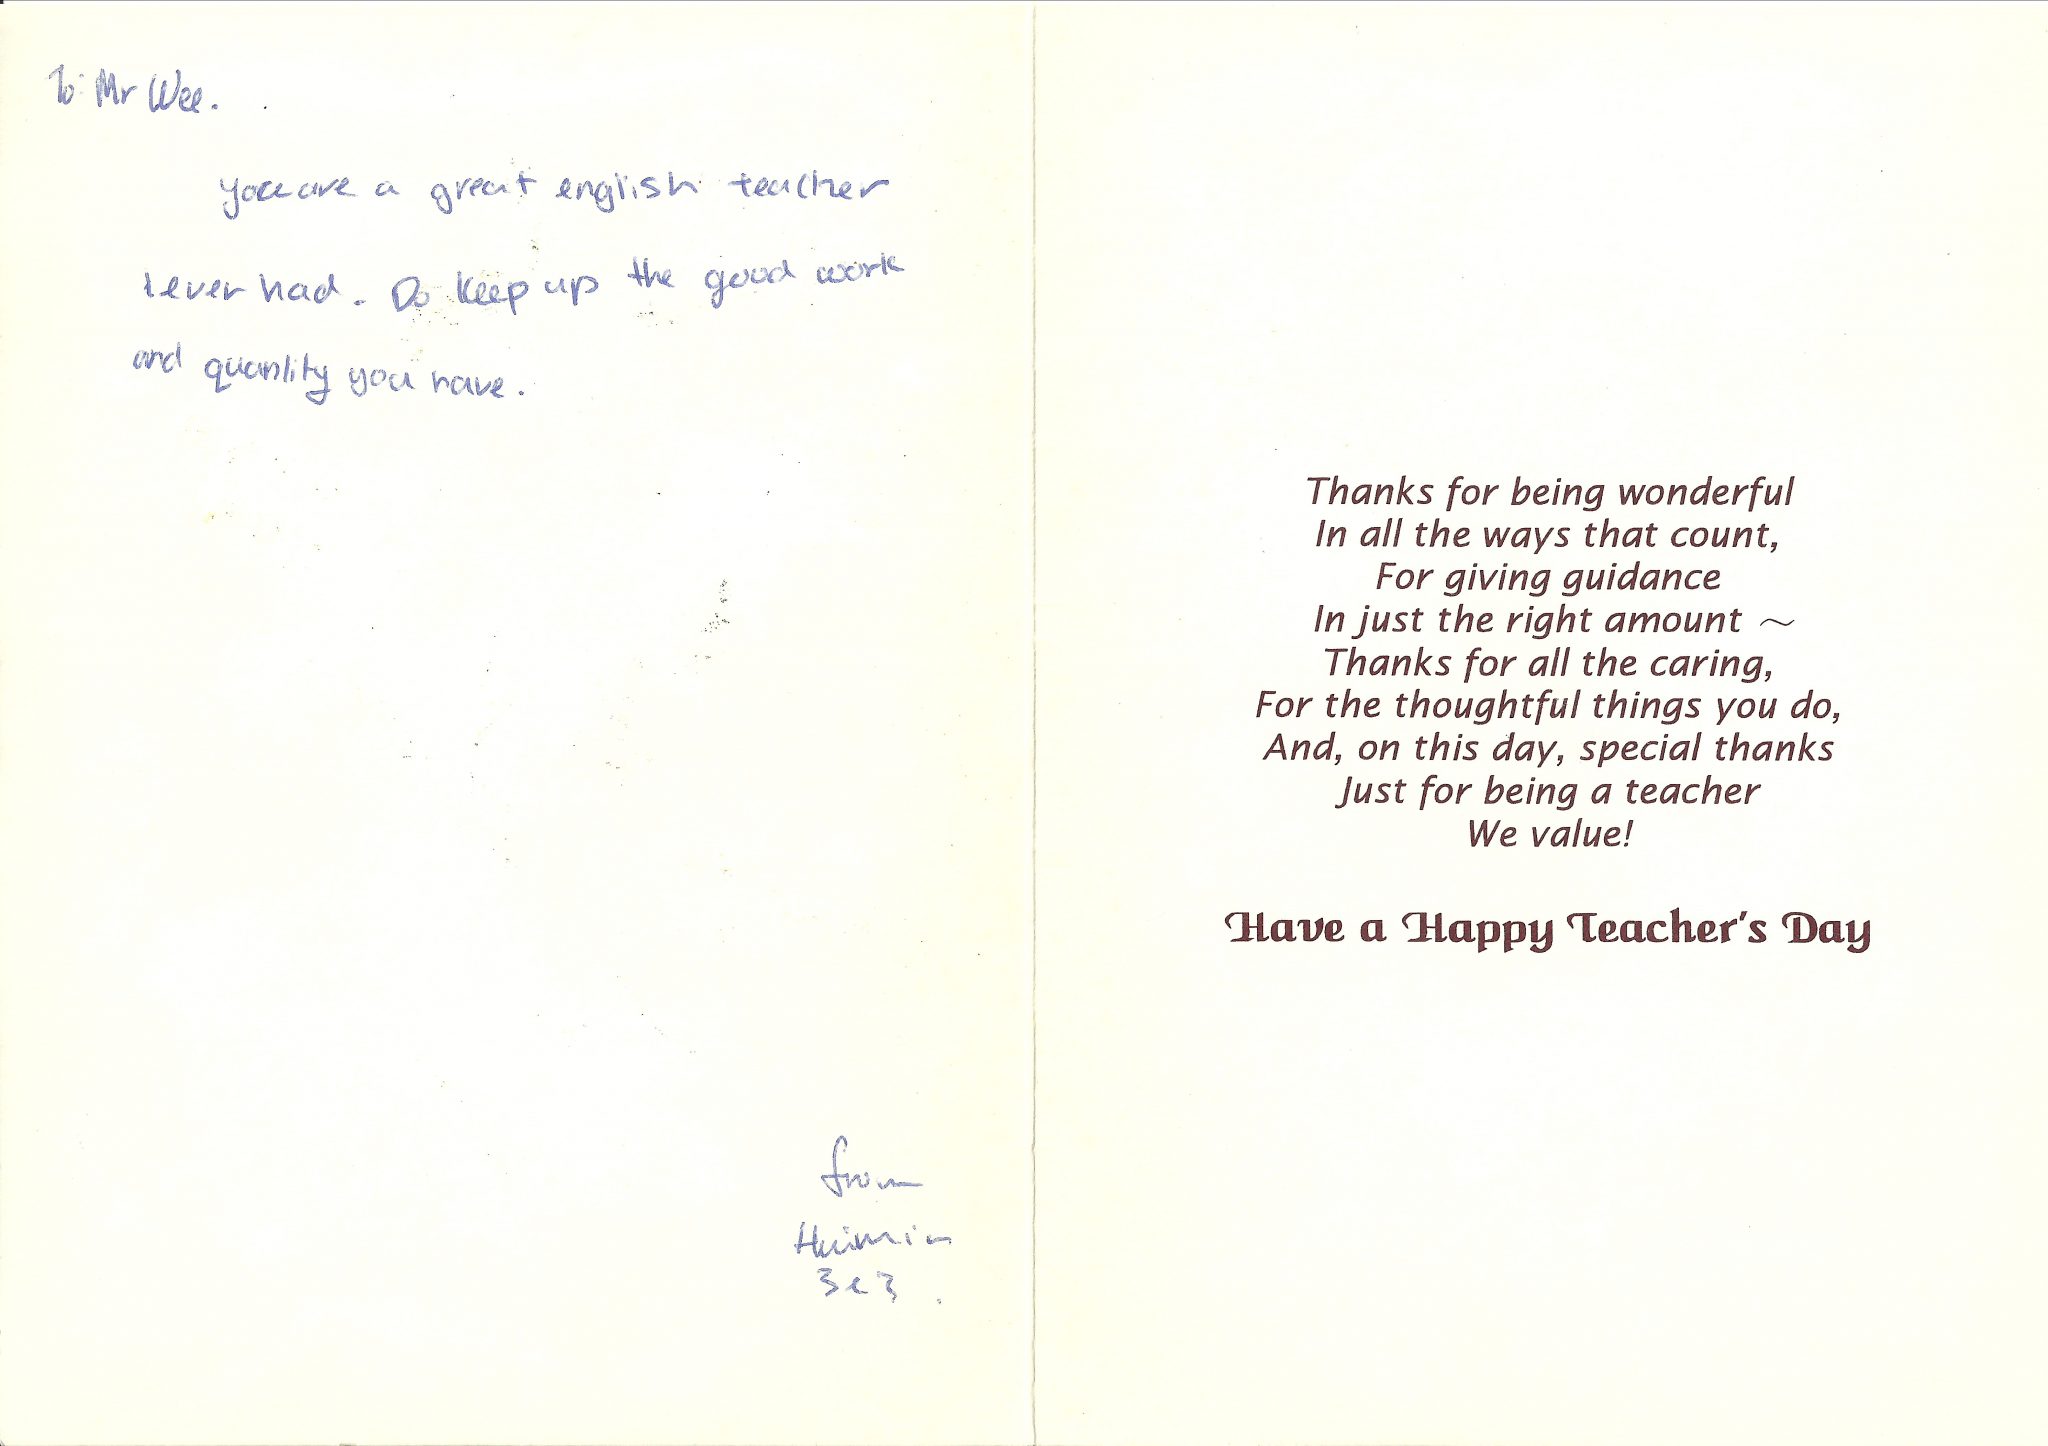 To: Mr Wee.
you are a great english teacher
I ever had. Do keep up the good work
and quanlity you have.
from
Huimin
3e3.
Thanks for being wonderful
In all the ways that count,
For giving guidance
In just the right amount ~
Thanks for all the caring,
For the thoughtful things you do,
And, on this day, special thanks
Just for being a teacher
We value!
Have a Happy Teacher's Day